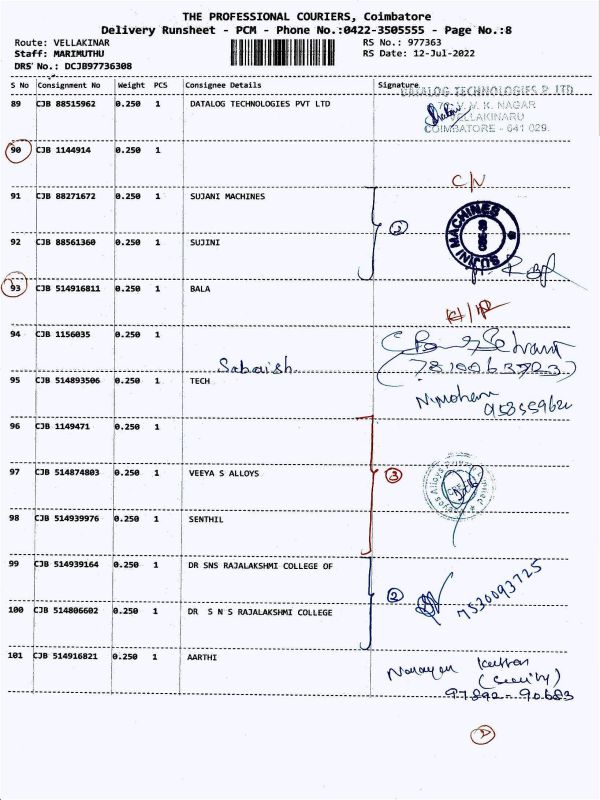 THE PROFESSIONAL COURIERS, Coimbatore
Delivery Runsheet - PCM - Phone No.:0422-3505555 - Page No.:8
Route: VELLAKINAR RS No.: 977363
Staff: MARIMUTHU RS Date: 12-Jul-2022
DRS No.: DCJB97736308
S No Consignment No Weight PCS Consignee Details Signature
DATALOG TECHNOLOGIES P LTD
89 CJB 88515962 0.250 1 DATALOG TECHNOLOGIES PVT LTD
V. M. K. NAGAR
VELLAKINARU
COIMBATORE - 641 029.
90 CJB 1144914 0.250 1
C/N
91 CJB 88271672 0.250 1 SUJANI MACHINES
2
SUJINI MACHINES
92 CJB 88561360 0.250 1 SUJINI
93 CJB 514916811 0.250 1 BALA
94 CJB 1156035 0.250 1
Sabarish.
95 CJB 514893506 0.250 1 TECH
96 CJB 1149471 0.250 1
97 CJB 514874803 0.250 1 VEEYA S ALLOYS
3
98 CJB 514939976 0.250 1 SENTHIL
99 CJB 514939164 0.250 1 DR SNS RAJALAKSHMI COLLEGE OF
2
7530093725
100 CJB 514806602 0.250 1 DR S N S RAJALAKSHMI COLLEGE
101 CJB 514916821 0.250 1 AARTHI
(Security)
97892-90683